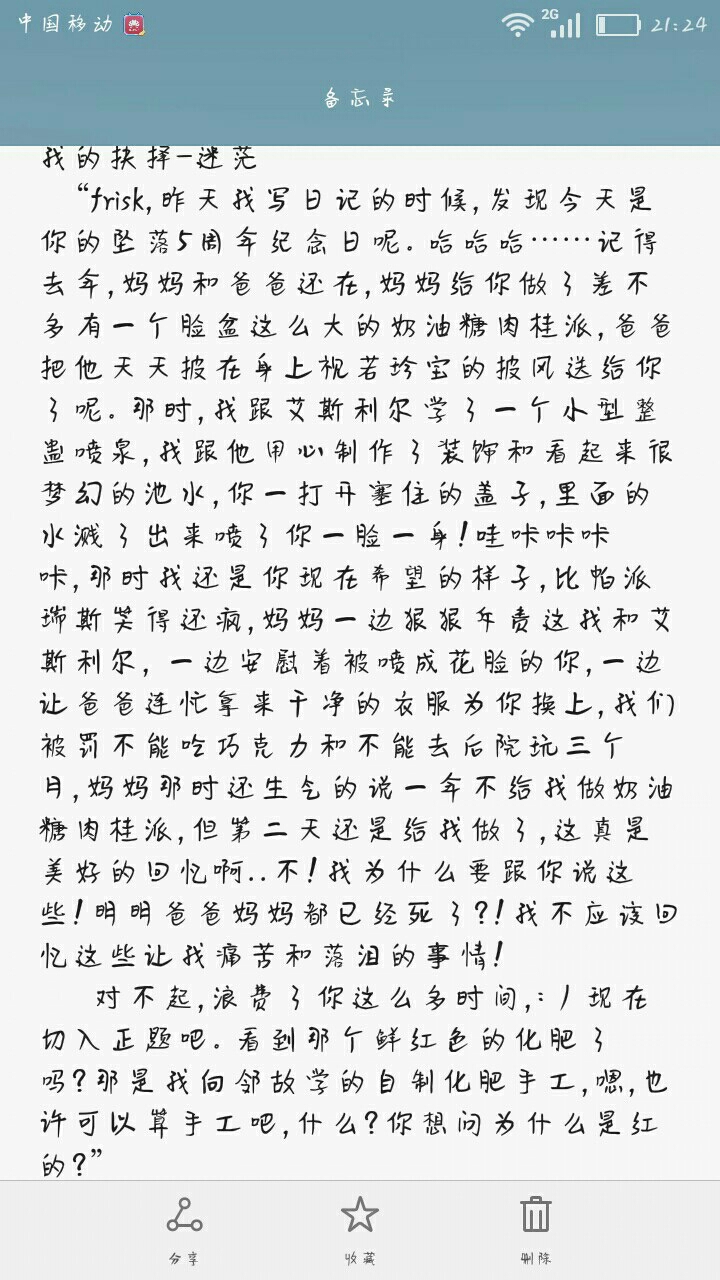 中国移动 2G 21:24
备忘录
我的抉择-迷茫
“frisk,昨天我写日记的时候,发现今天是
你的坠落5周年纪念日呢。哈哈哈……记得
去年,妈妈和爸爸还在,妈妈给你做了差不
多有一个脸盆这么大的奶油糖肉桂派,爸爸
把他天天披在身上视若珍宝的披风送给你
了呢。那时,我跟艾斯利尔学了一个小型整
蛊喷泉,我跟他用心制作了装饰和看起来很
梦幻的池水,你一打开塞住的盖子,里面的
水溅了出来喷了你一脸一身!哇咔咔咔
咔,那时我还是你现在希望的样子,比帕派
瑞斯笑得还疯,妈妈一边狠狠斥责这我和艾
斯利尔, 一边安慰着被喷成花脸的你,一边
让爸爸连忙拿来干净的衣服为你换上,我们
被罚不能吃巧克力和不能去后院玩三个
月,妈妈那时还生气的说一年不给我做奶油
糖肉桂派,但第二天还是给我做了,这真是
美好的回忆啊..不!我为什么要跟你说这
些!明明爸爸妈妈都已经死了?!我不应该回
忆这些让我痛苦和落泪的事情!
对不起,浪费了你这么多时间,:)现在
切入正题吧。看到那个鲜红色的化肥了
吗?那是我向邻故学的自制化肥手工,嗯,也
许可以算手工吧,什么?你想问为什么是红
的?”
分享 收藏 删除